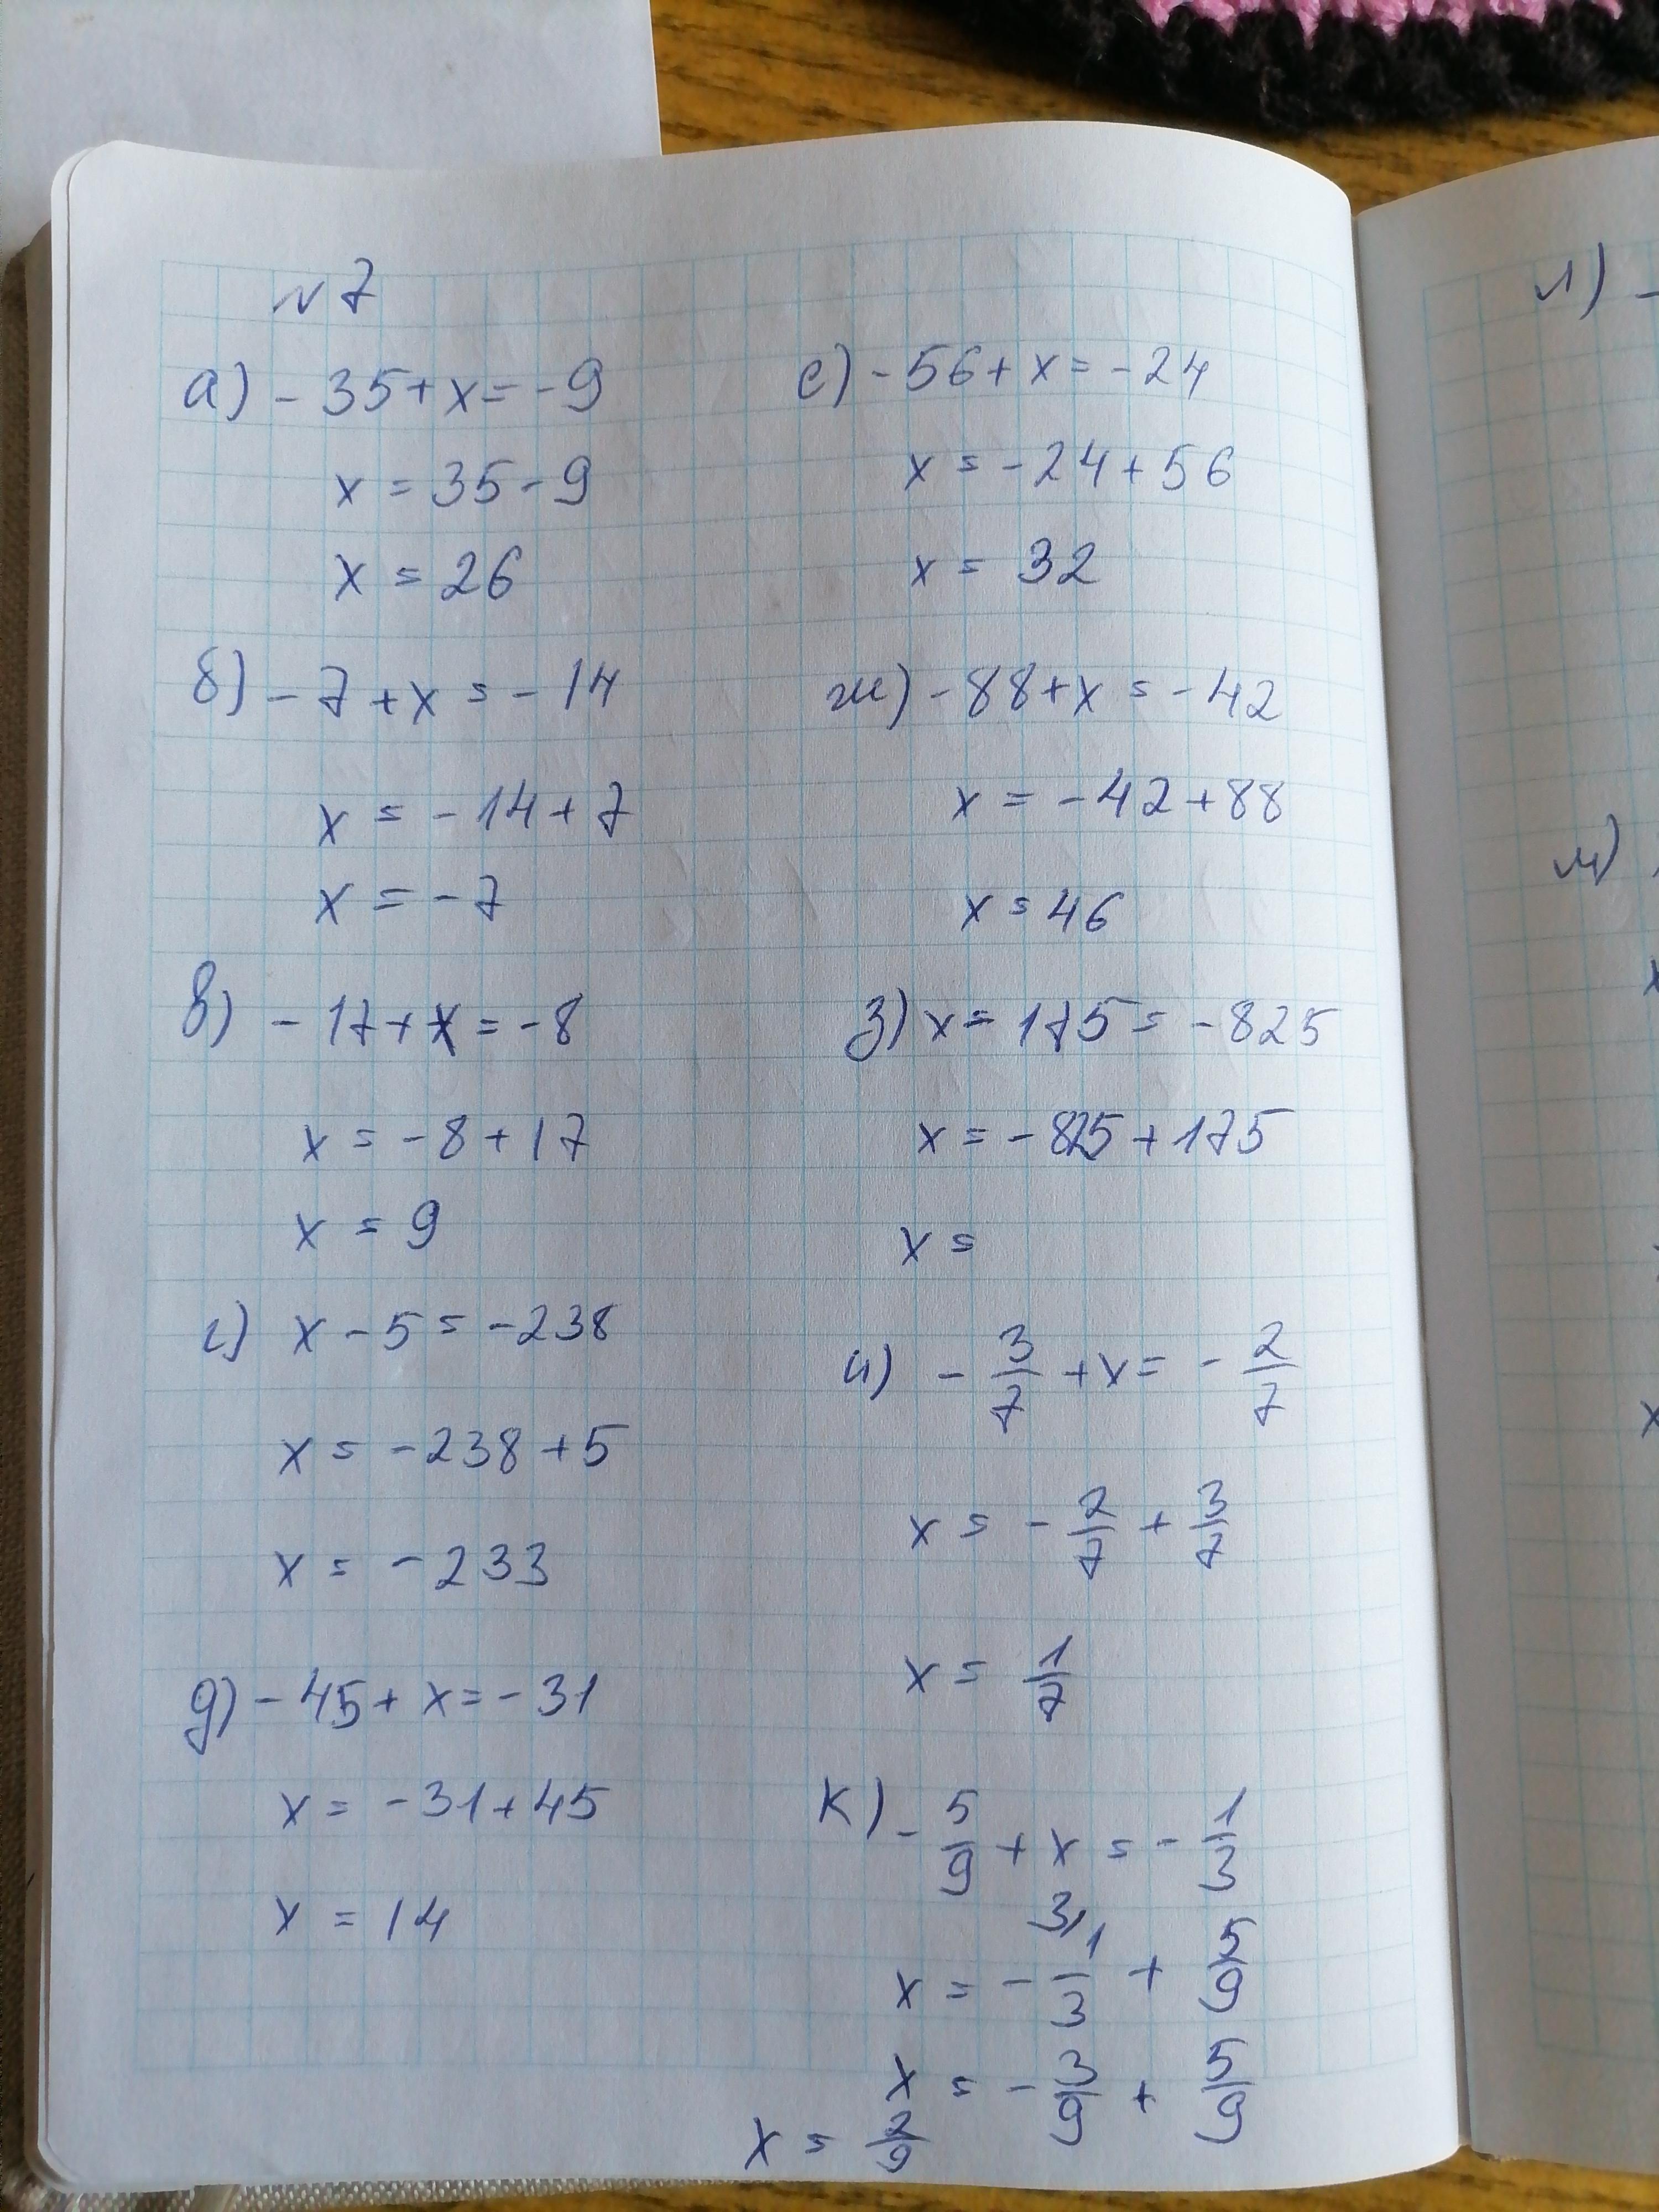 №7
а) -35+x=-9
x=35-9
x=26
б) -7+x=-14
x=-14+7
x=-7
в) -17+x=-8
x=-8+17
x=9
г) x-5=-238
x=-238+5
x=-233
д) -45+x=-31
x=-31+45
x=14
е) -56+x=-24
x=-24+56
x=32
ж) -88+x=-42
x=-42+88
x=46
з) x=175=-825
x=-825+175
x=
и) -3/7+x=-2/7
x=-2/7+3/7
x=1/7
к) -5/9+x=-1/3
3/
x=-1/3+5/9
x=-3/9+5/9
x=2/9
л) -
м)
x
x